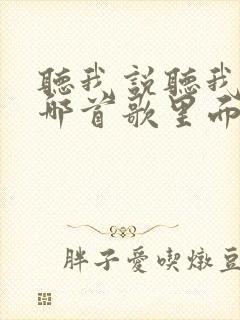 聽我説聽我
那首歌里而
胖子愛喫燉豆